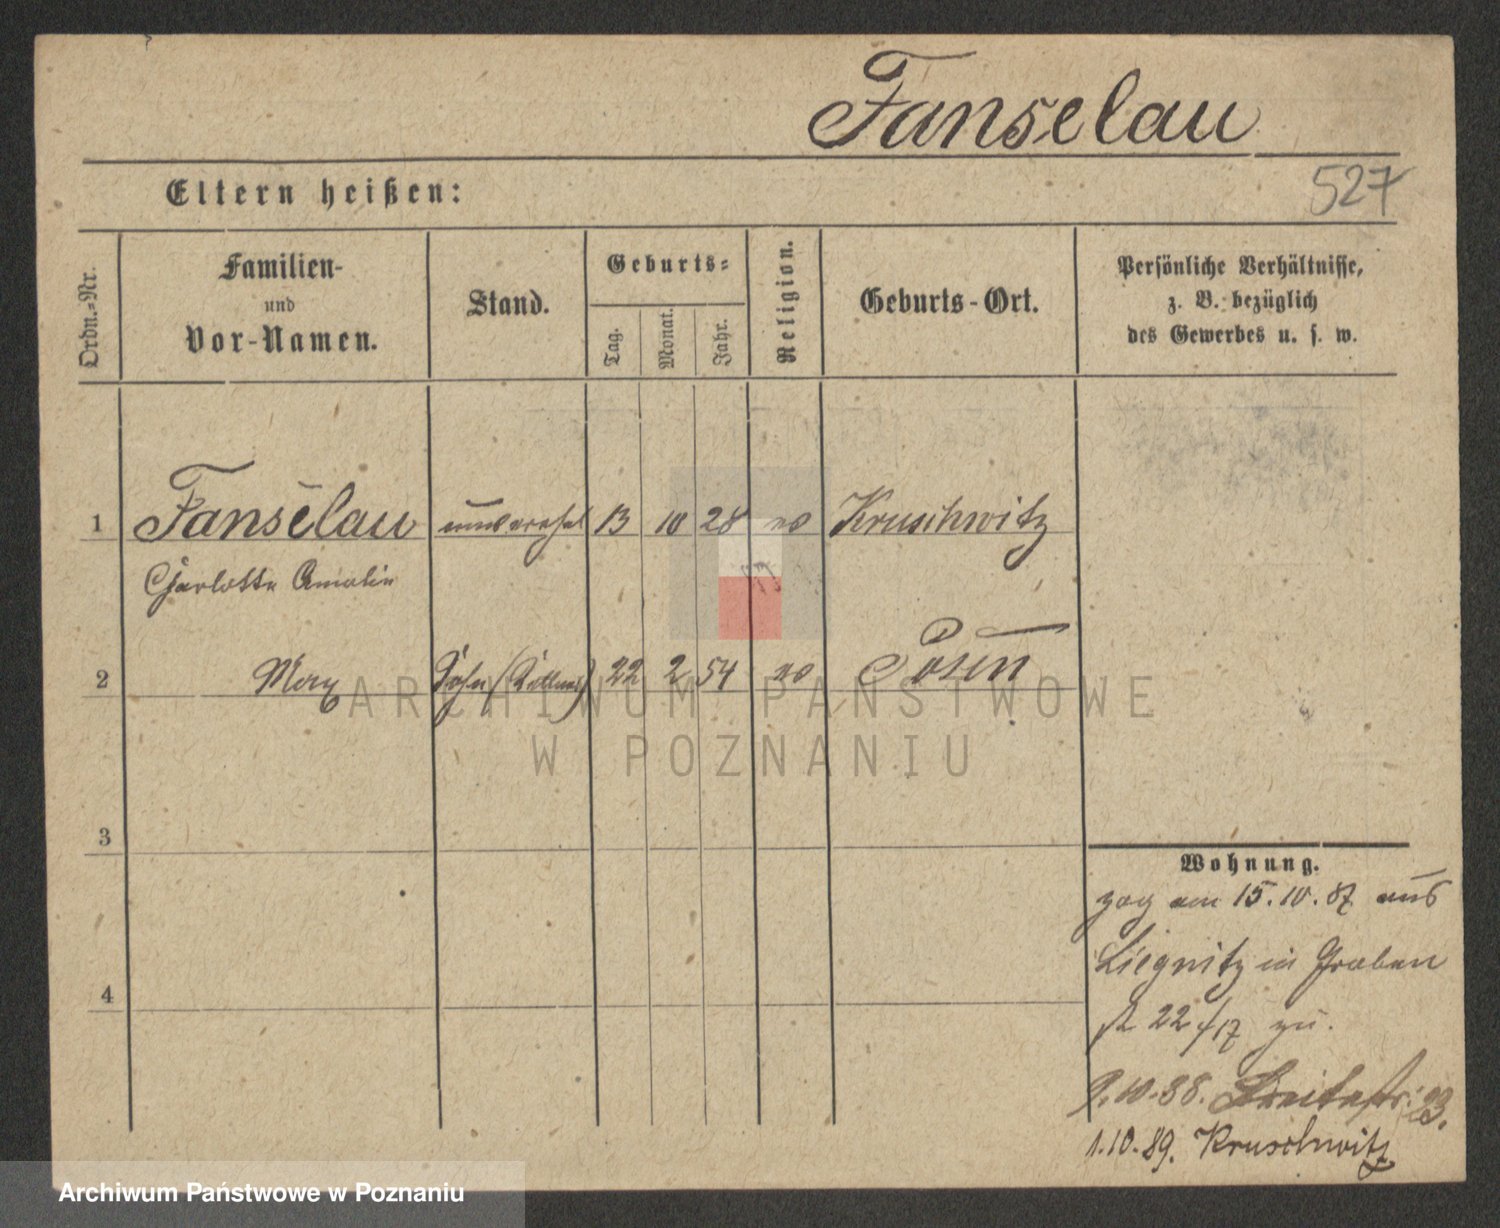 Fanselau
527
Eltern heißen:
Ordn.-Nr.
Familien- und Vor-Namen.
Stand.
Geburts-
Tag.
Monat.
Jahr.
Religion.
Geburts-Ort.
Persönliche Verhältnisse,
z. B. bezüglich
des Gewerbes u. s. w.
1 Fanselau unverehel 13 10 28 ev Kruschwitz
Charlotte Amalie
2 Max Sohn 22 2 54 ev Posen
3
4
Wohnung.
zog am 15.10.87 aus
Liegnitz in Graben
st 22/17 zu.
9.10.88. Breitestr. 23.
1.10.89. Kruschwitz
ARCHIWUM PAŃSTWOWE
W POZNANIU
Archiwum Państwowe w Poznaniu